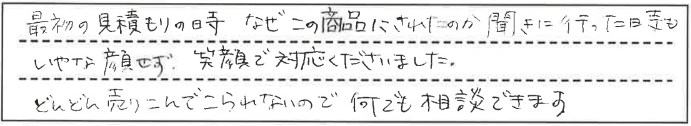 最初の見積もりの時 なぜこの商品にされたのか聞きに行った時も
いやな顔せず、笑顔で対応くださいました。
どんどん売りこんでこられないので 何でも相談できます